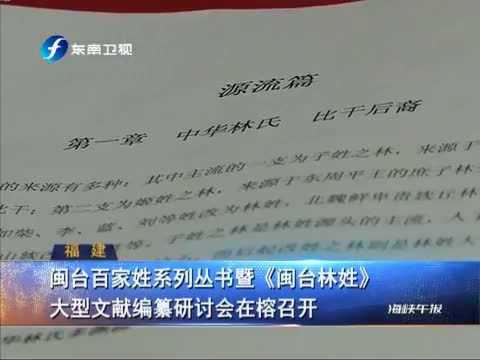 东南卫视
源流篇
第一章 中华林氏 比干后裔
的来源有多种:其中主流的一支为子姓之林,来源于
比干;第二支为姬姓之林,来源于东周平王的庶子林
如柴、李、蓝、刘等姓改为林姓,北魏鲜卑贵族丘林
福建
闽台百家姓系列丛书暨《闽台林姓》
大型文献编纂研讨会在榕召开
海峡午报